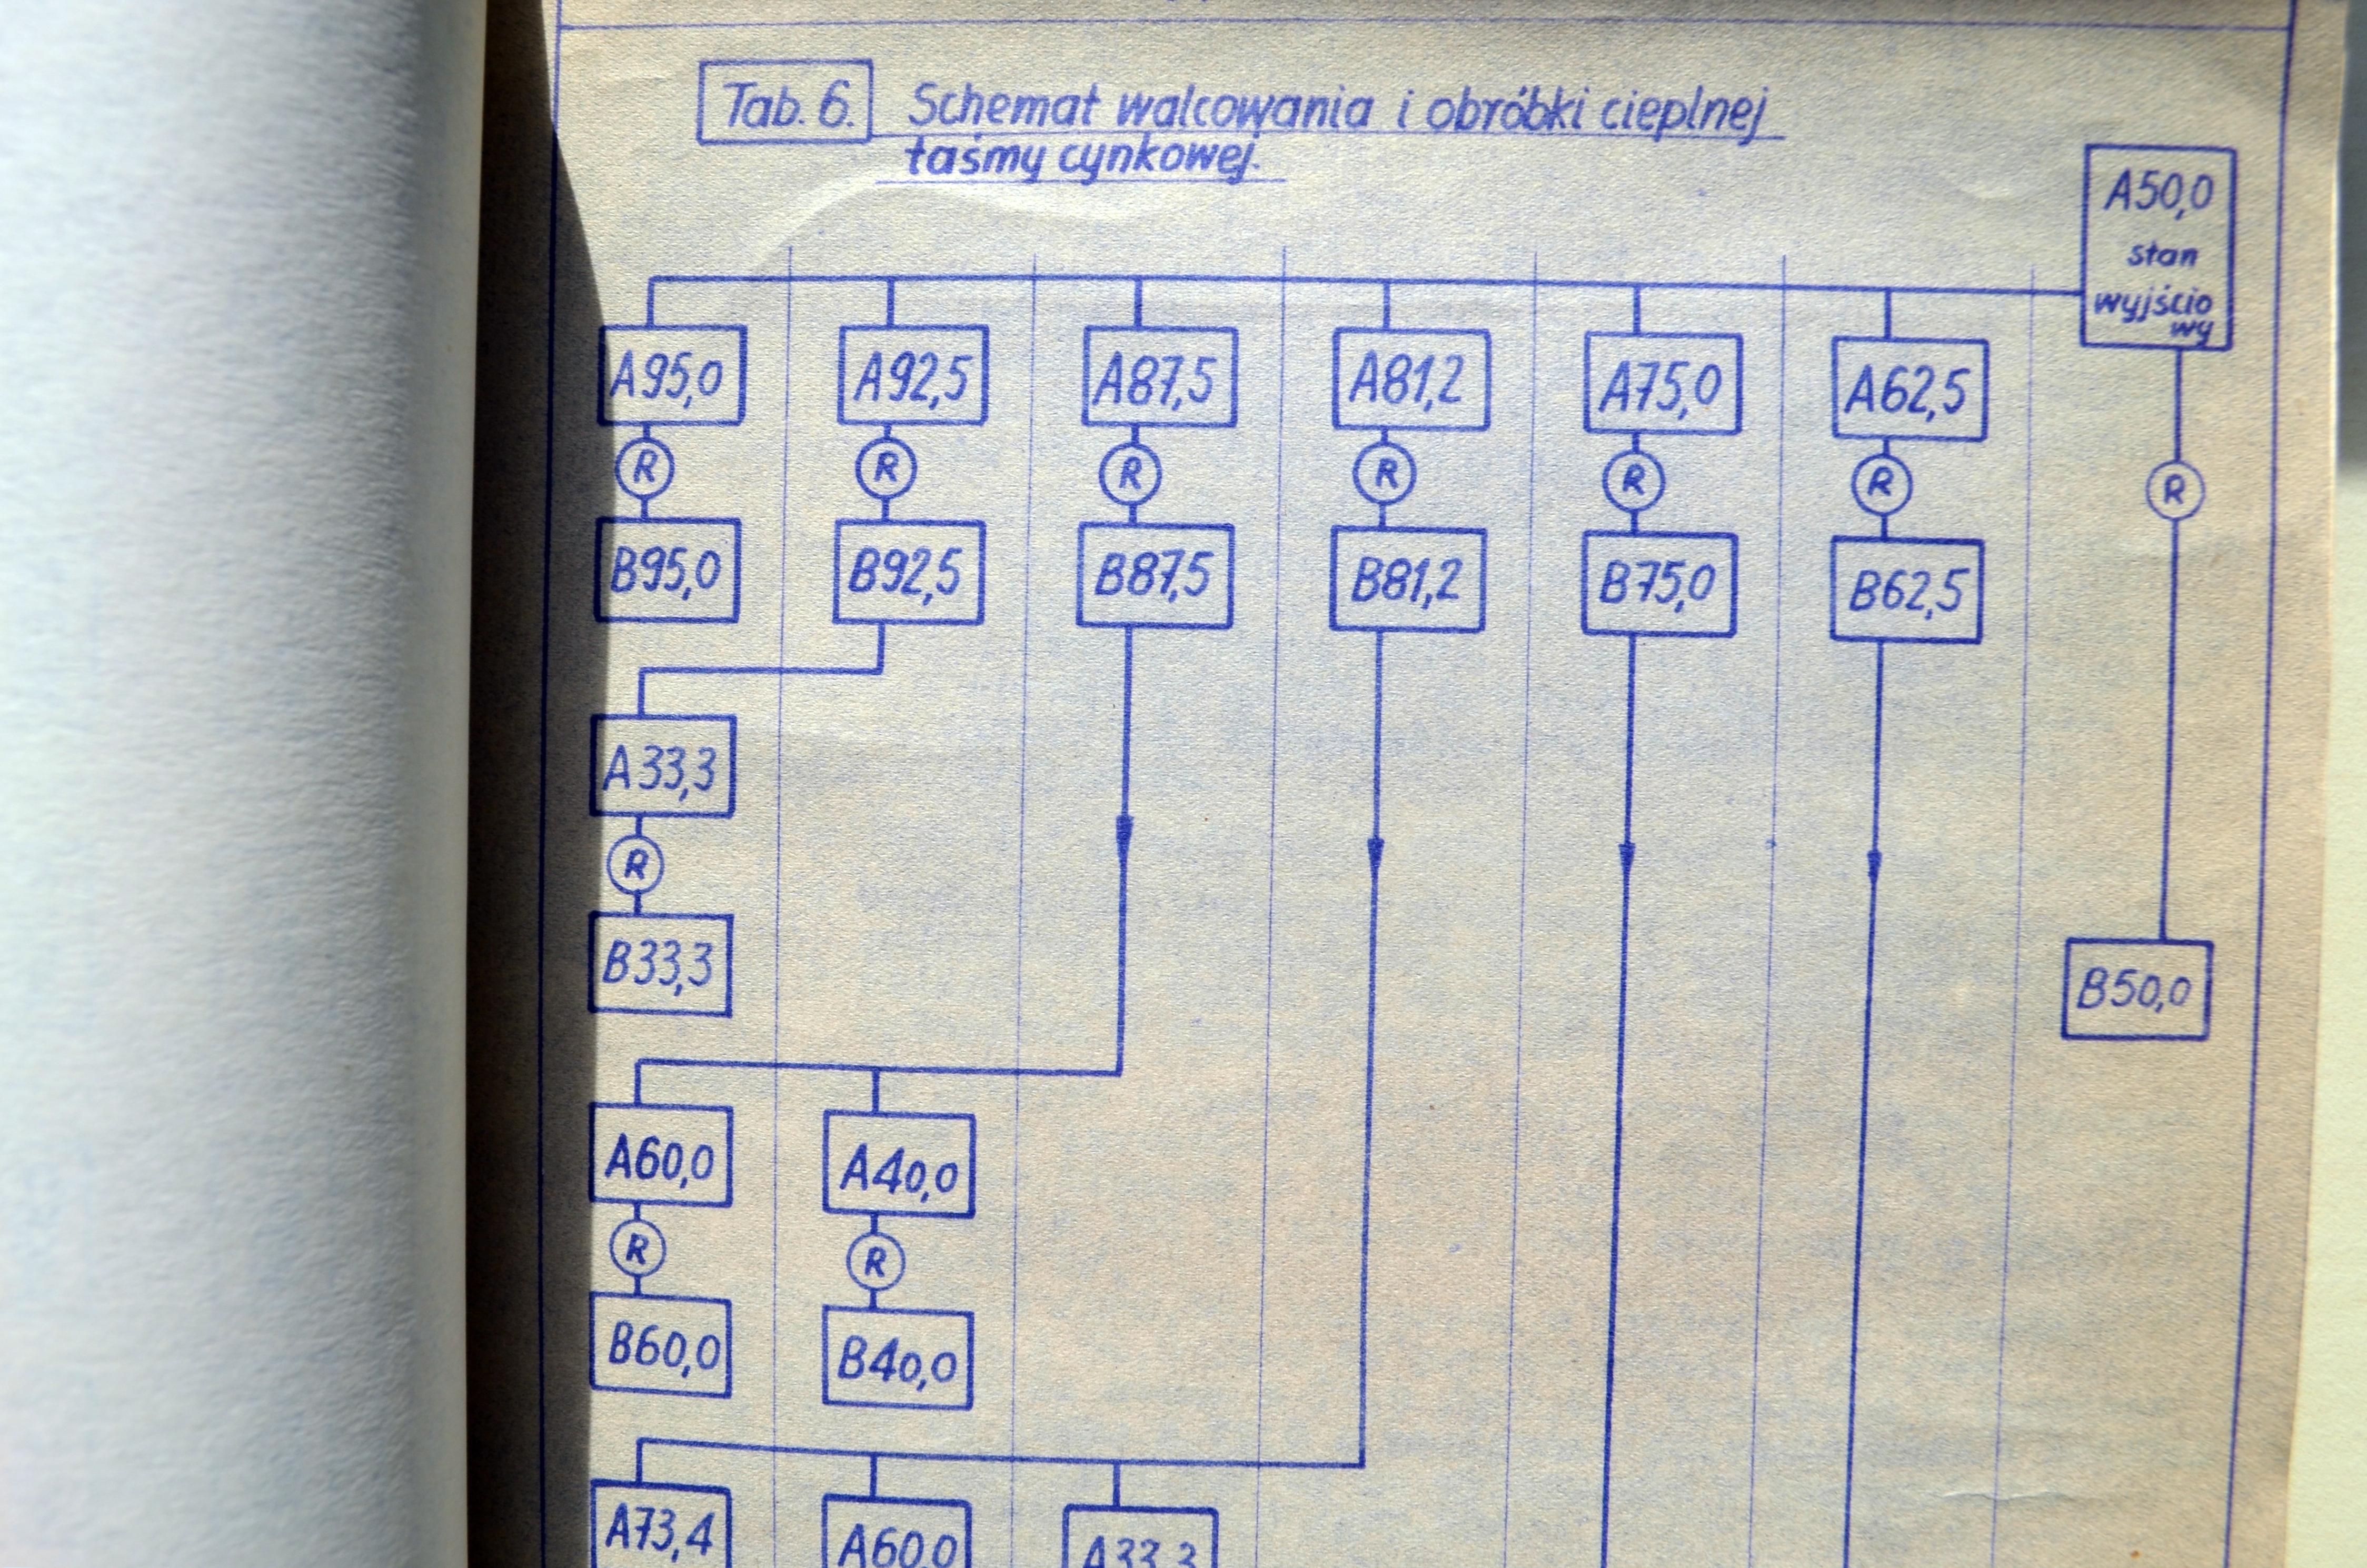 Tab. 6. Schemat walcowania i obróbki cieplnej
taśmy cynkowej.
A50,0
stan
wyjścio
wy
A95,0 A92,5 A87,5 A81,2 A75,0 A62,5
R R R R R R R
B95,0 B92,5 B87,5 B81,2 B75,0 B62,5
A33,3
R
B33,3 B50,0
A60,0 A40,0
R R
B60,0 B40,0
A73,4 A60,0 A33,3